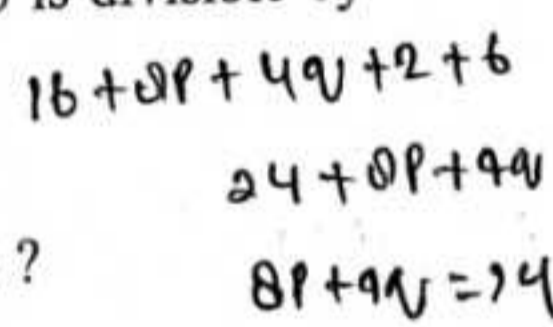 16 + 8P + 4q + 2 + 6
24 + 8P + 4q
?
8P + 4q = 24